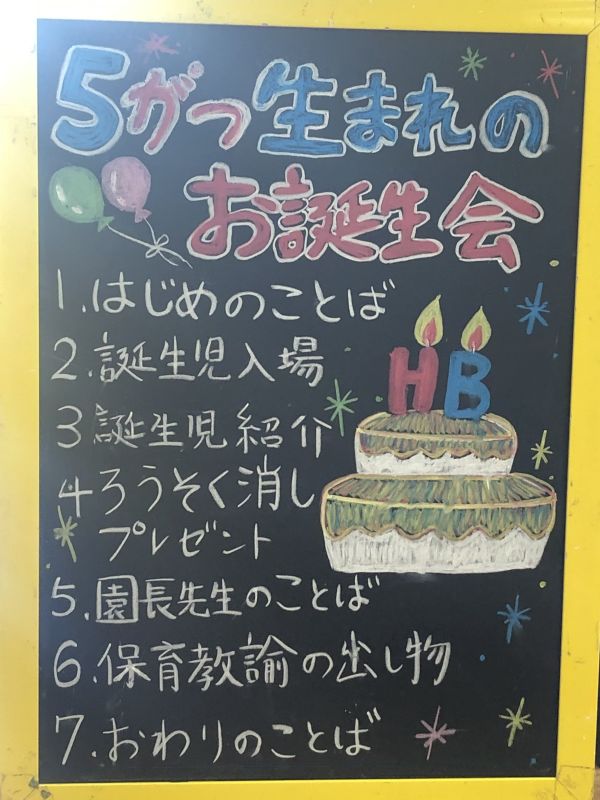 5がつ生まれの
お誕生会
1.はじめのことば
2.誕生児入場
3 誕生児紹介
4 ろうそく消し
プレゼント
5.園長先生のことば
6.保育教諭の出し物
7.おわりのことば
HB